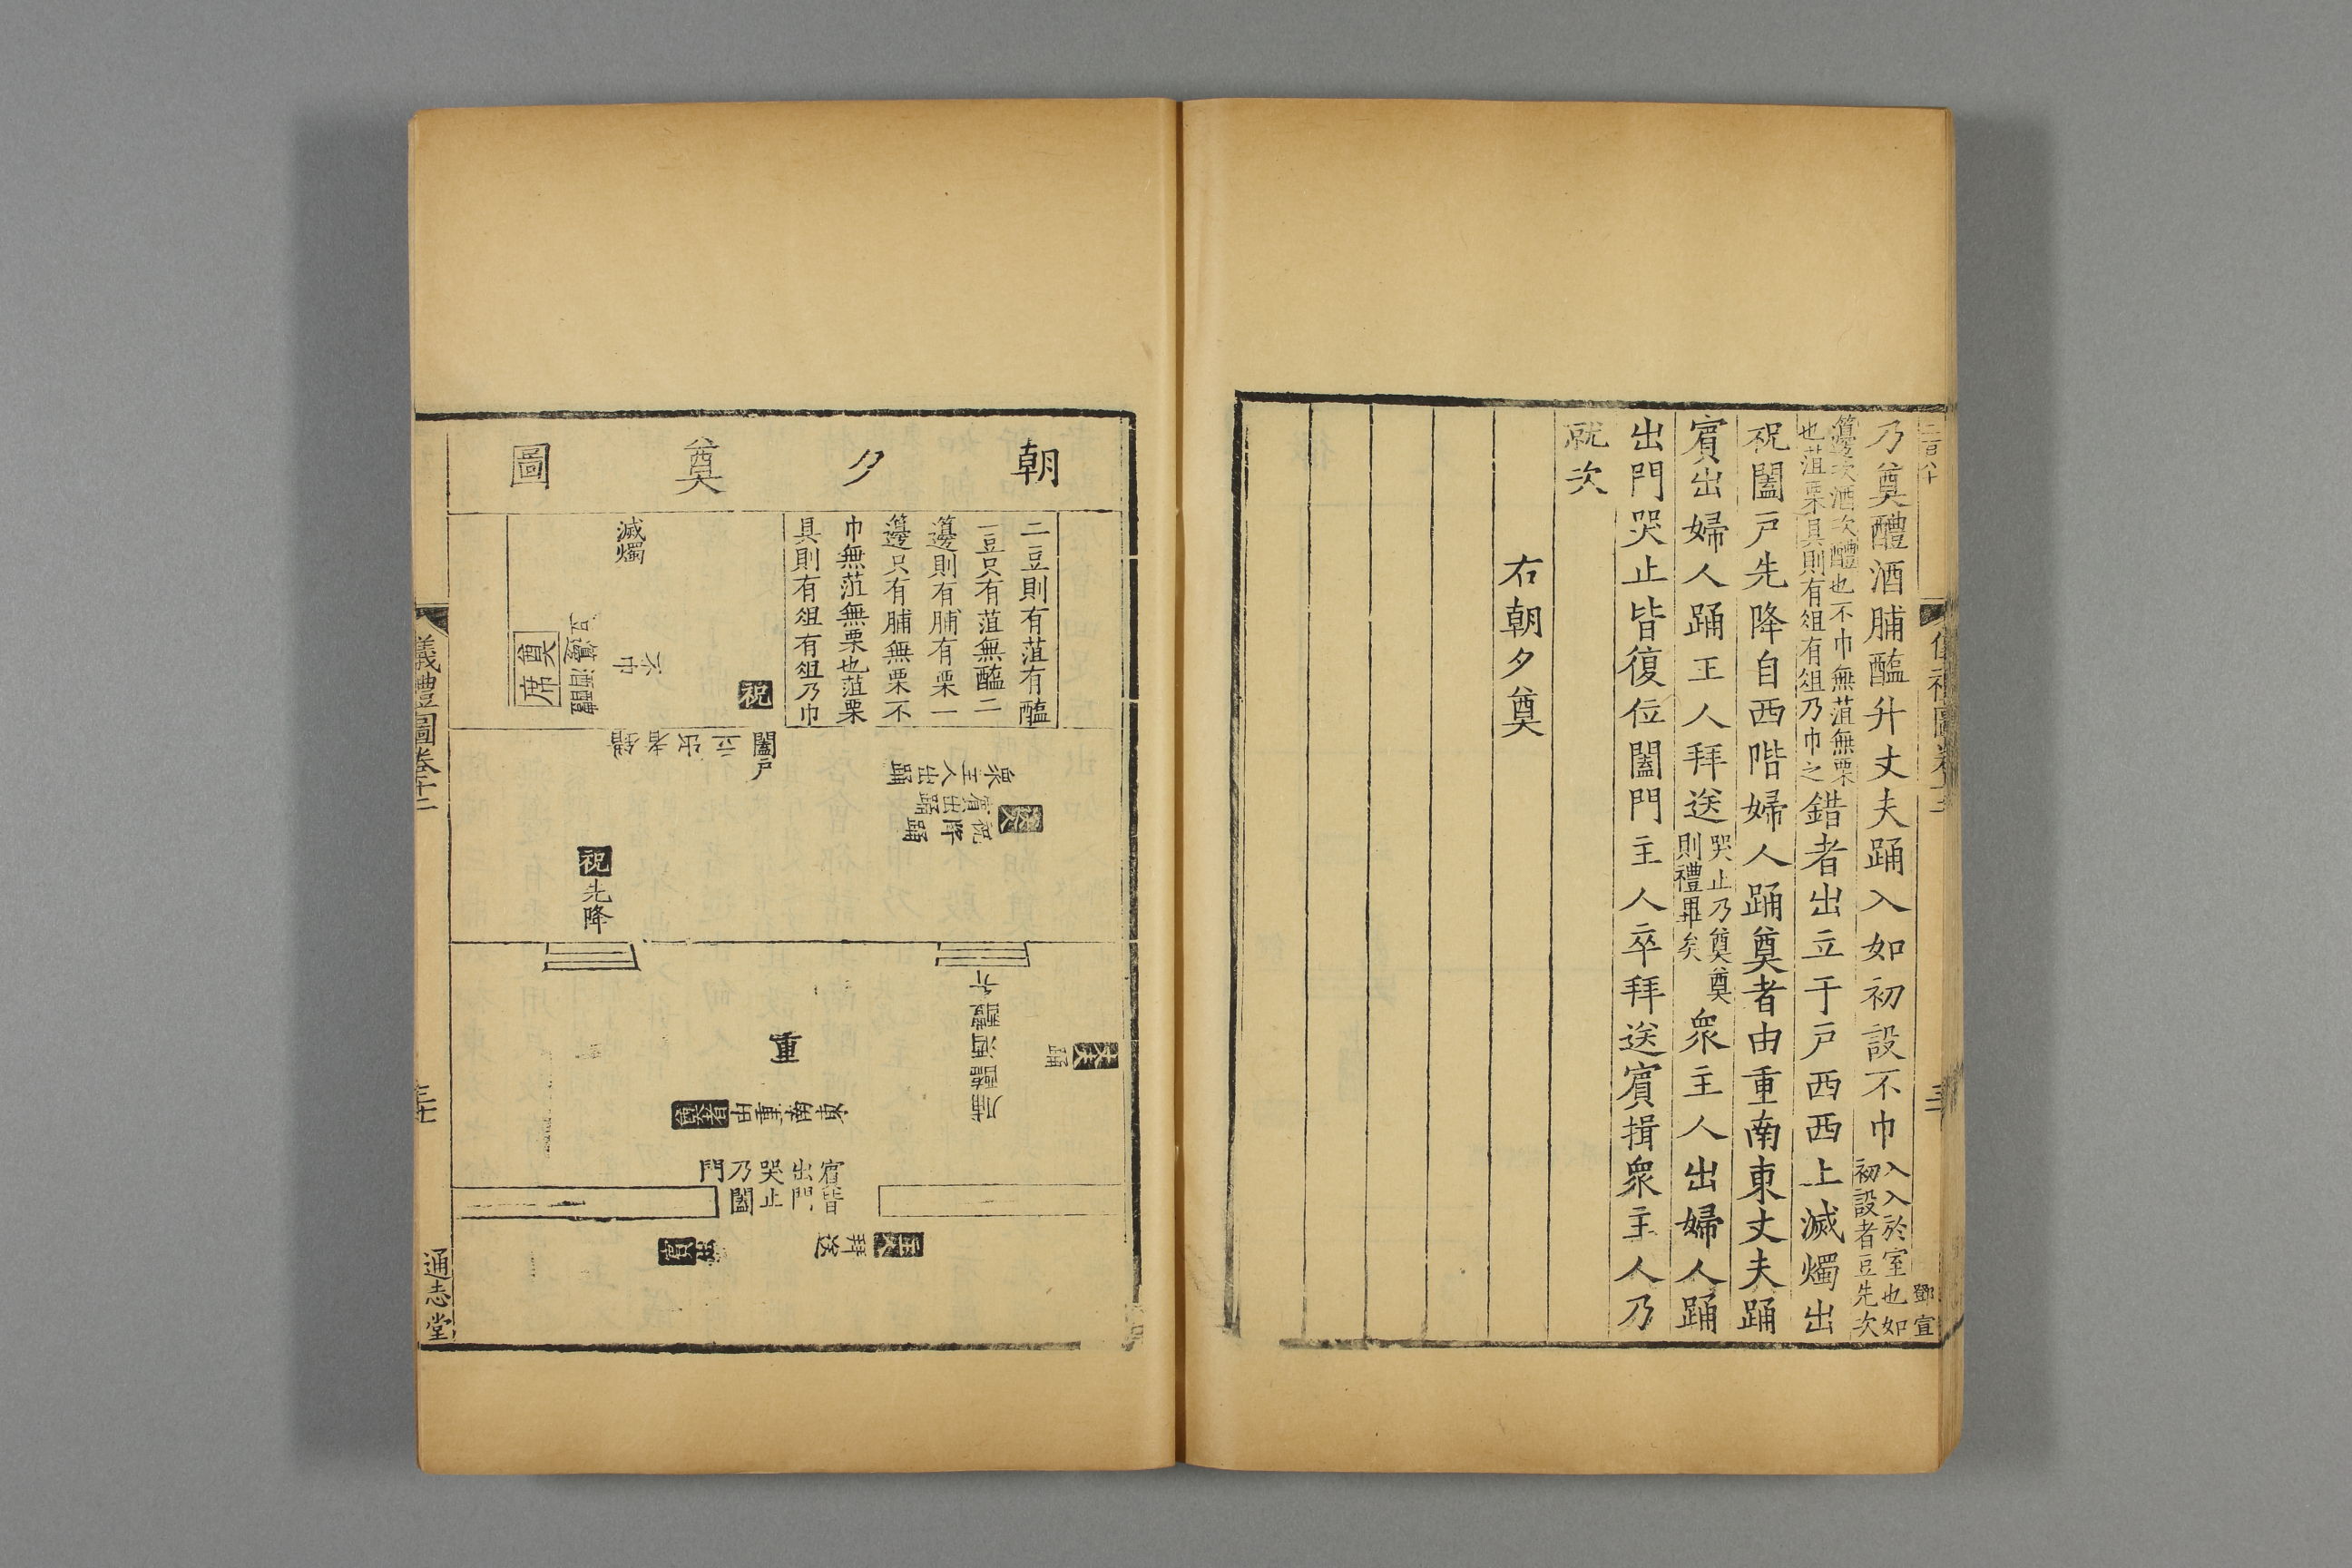 乃奠醴酒脯醢升丈夫踊入如初設不巾入入於室也如初設者豆先次
籩次酒次醴也不巾無菹無栗也菹栗具則有俎有俎乃巾之錯者出立于戶西西上滅燭出
祝闔戶先降自西階婦人踊奠者由重南東丈夫踊
賓出婦人踊主人拜送哭止乃奠奠則禮畢矣衆主人出婦人踊
出門哭止皆復位闔門主人卒拜送賓揖衆主人乃
就次
右朝夕奠
鄧宣
朝夕奠圖
二豆則有菹有醢
一豆只有菹無醢二
籩則有脯有栗一
籩只有脯無栗不
巾無菹無栗也菹栗
具則有俎有俎乃巾
滅燭
不巾
豆籩酒醴
奠席
祝
闔戶
衆主人出踊
賓出踊
祝降踊
祝先降
重
丈夫踊
奠者由重南東
賓皆
出門
哭止
乃闔
門
主人拜送
賓
儀禮圖卷十二
通志堂